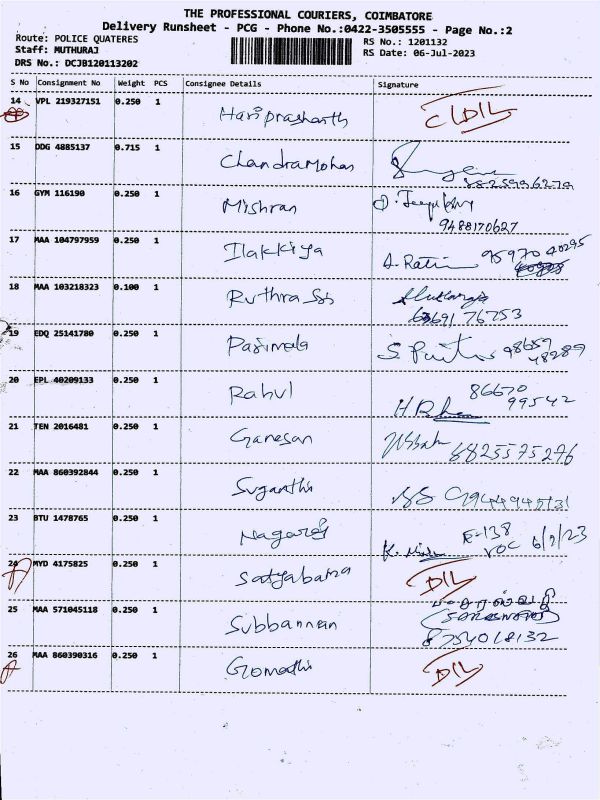 THE PROFESSIONAL COURIERS, COIMBATORE
Delivery Runsheet - PCG - Phone No.:0422-3505555 - Page No.:2
Route: POLICE QUATERES
RS No.: 1201132
Staff: MUTHURAJ
RS Date: 06-Jul-2023
DRS No.: DCJB120113202
S No Consignment No Weight PCS Consignee Details Signature
14 VPL 219327151 0.250 1 Hariprashanth
15 DDG 4885137 0.715 1 Chandramohan
16 GYM 116190 0.250 1 Mishran
9488170627
17 MAA 104797959 0.250 1 Ilakkiya 95970 40295
18 MAA 103218323 0.100 1 Ruthra
76753
19 EDQ 25141780 0.250 1 Parimala 98659
48289
20 EPL 40209133 0.250 1 Rahul 86670
99542
21 TEN 2016481 0.250 1 Ganesan 8825575276
22 MAA 860392844 0.250 1 Suganthi
23 BTU 1478765 0.250 1 Nagaraj E-138
VOC 6/7/23
24 MYD 4175825 0.250 1 Satyabama D/L
25 MAA 571045118 0.250 1 Subbannan
8754018132
26 MAA 860390316 0.250 1 Gomathi D/L